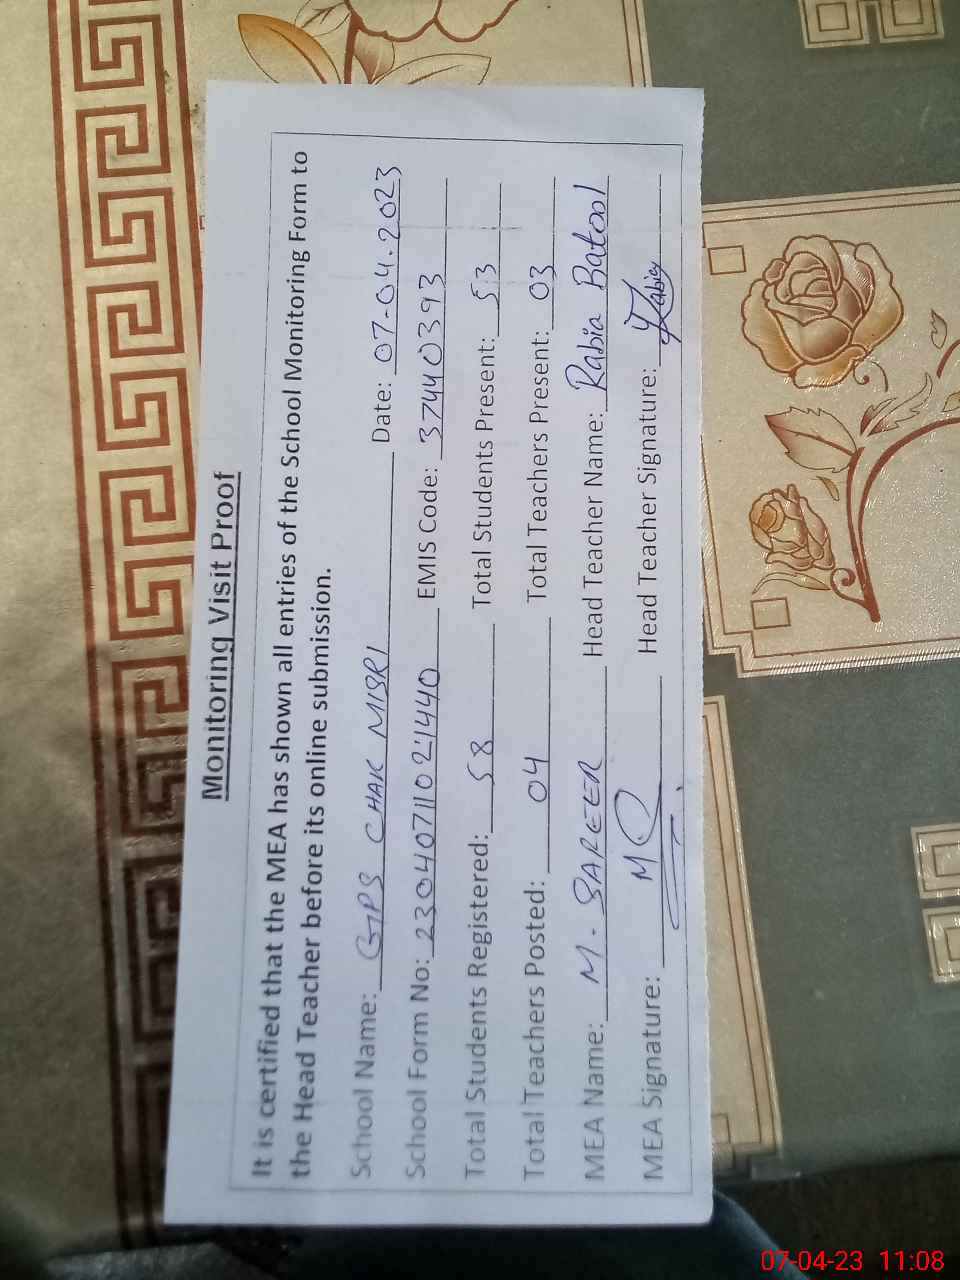 Monitoring Visit Proof
It is certified that the MEA has shown all entries of the School Monitoring Form to
the Head Teacher before its online submission.
School Name: GPS CHAK MISRI Date: 07-04.2023
School Form No: 230407110 21440 EMIS Code: 37440393
Total Students Registered: 58 Total Students Present: 53
Total Teachers Posted: 04 Total Teachers Present: 03
MEA Name: M. SAREER Head Teacher Name: Rabia Batool
MEA Signature: Head Teacher Signature: Rabia
07-04-23 11:08